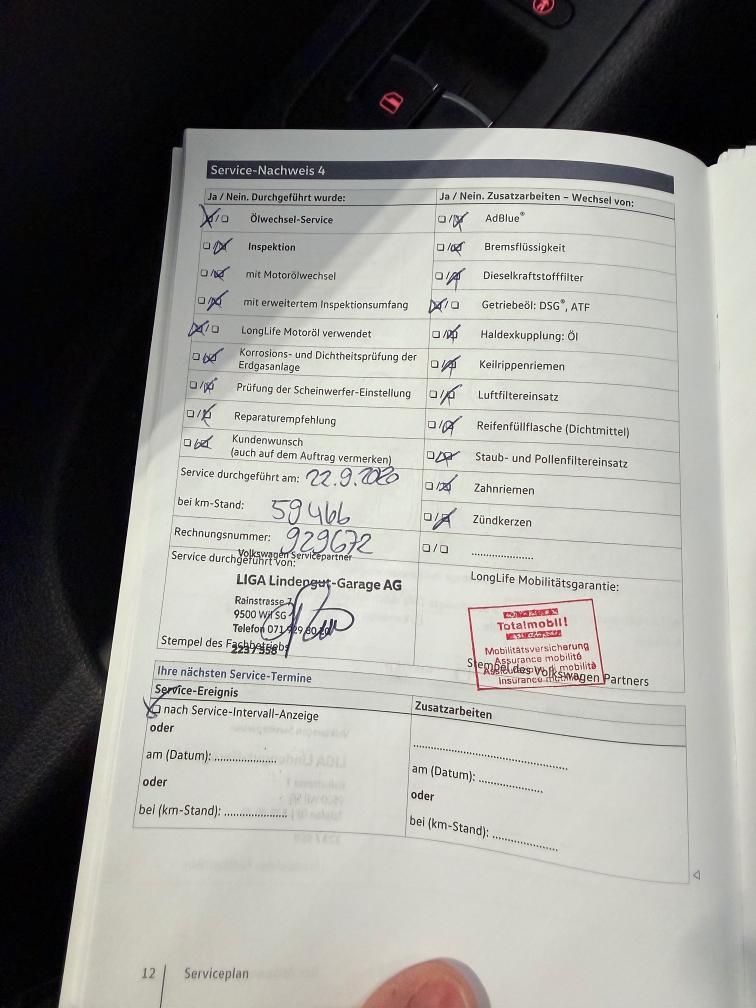 Service-Nachweis 4
Ja / Nein. Durchgeführt wurde:
Ölwechsel-Service
Inspektion
mit Motorölwechsel
mit erweitertem Inspektionsumfang
LongLife Motoröl verwendet
Korrosions- und Dichtheitsprüfung der
Erdgasanlage
Prüfung der Scheinwerfer-Einstellung
Reparaturempfehlung
Kundenwunsch
(auch auf dem Auftrag vermerken)
Service durchgeführt am: 22.9.2020
bei km-Stand: 59466
Rechnungsnummer: 929672
Volkswagen Servicepartner
Service durchgeführt von:
LIGA Lindengut-Garage AG
Rainstrasse
9500 Wil SG
Telefon 071
Stempel des Fachbetriebs
Ja / Nein. Zusatzarbeiten – Wechsel von:
AdBlue®
Bremsflüssigkeit
Dieselkraftstofffilter
Getriebeöl: DSG®, ATF
Haldexkupplung: Öl
Keilrippenriemen
Luftfiltereinsatz
Reifenfüllflasche (Dichtmittel)
Staub- und Pollenfiltereinsatz
Zahnriemen
Zündkerzen
/ ......................
LongLife Mobilitätsgarantie:
Totalmobil!
Mobilitätsversicherung
Assurance mobilité
mobilità
Insurance
Stempel des Volkswagen Partners
Ihre nächsten Service-Termine
Service-Ereignis
nach Service-Intervall-Anzeige
oder
am (Datum): ......................
oder
bei (km-Stand): ......................
Zusatzarbeiten
......................................................
am (Datum): ......................
oder
bei (km-Stand): ......................
12 | Serviceplan